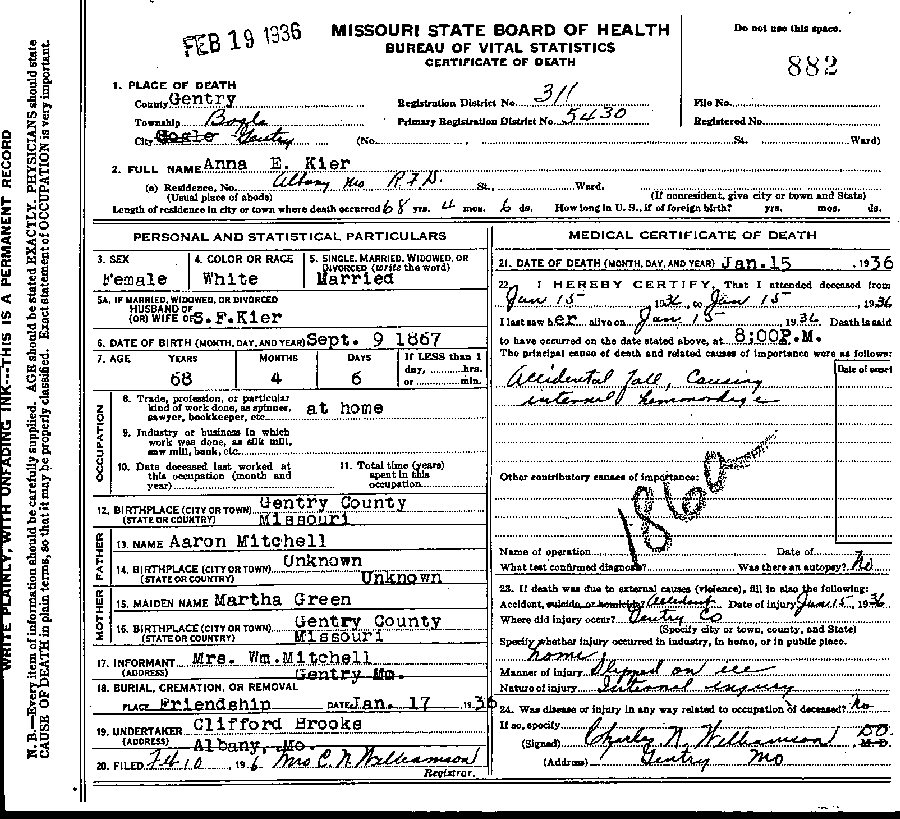 FEB 19 1936
MISSOURI STATE BOARD OF HEALTH
BUREAU OF VITAL STATISTICS
CERTIFICATE OF DEATH
Do not use this space.
882
1. PLACE OF DEATH
County Gentry
Township Bogle
City Bogle Gentry (No. , St. Ward)
Registration District No. 311
Primary Registration District No. 5430
File No.
Registered No.
2. FULL NAME Anna E. Kier
(a) Residence, No. Albany Mo R.F.D. St., Ward.
(Usual place of abode) (If nonresident, give city or town and State)
Length of residence in city or town where death occurred 68 yrs. 4 mos. 6 ds. How long in U.S., if of foreign birth? yrs. mos. ds.
PERSONAL AND STATISTICAL PARTICULARS
3. SEX
Female
4. COLOR OR RACE
White
5. SINGLE, MARRIED, WIDOWED, OR
DIVORCED (write the word)
Married
5A. IF MARRIED, WIDOWED, OR DIVORCED
HUSBAND OF
(OR) WIFE OF S.F.Kier
6. DATE OF BIRTH (MONTH, DAY, AND YEAR) Sept. 9 1867
7. AGE YEARS MONTHS DAYS If LESS than 1
day, hrs.
or min.
68 4 6
OCCUPATION
8. Trade, profession, or particular
kind of work done, as spinner,
sawyer, bookkeeper, etc. at home
9. Industry or business in which
work was done, as silk mill,
saw mill, bank, etc.
10. Date deceased last worked at
this occupation (month and
year)
11. Total time (years)
spent in this
occupation
12. BIRTHPLACE (CITY OR TOWN) Gentry County
(STATE OR COUNTRY) Missouri
FATHER
13. NAME Aaron Mitchell
14. BIRTHPLACE (CITY OR TOWN) Unknown
(STATE OR COUNTRY) Unknown
MOTHER
15. MAIDEN NAME Martha Green
16. BIRTHPLACE (CITY OR TOWN) Gentry County
(STATE OR COUNTRY) Missouri
17. INFORMANT Mrs. Wm.Mitchell
(ADDRESS) Gentry Mo.
18. BURIAL, CREMATION, OR REMOVAL
PLACE Friendship DATE Jan. 17 1936
19. UNDERTAKER Clifford Brooks
(ADDRESS) Albany, Mo.
20. FILED 2-10 1936 Mrs C. N. Williamson
Registrar.
MEDICAL CERTIFICATE OF DEATH
21. DATE OF DEATH (MONTH, DAY, AND YEAR) Jan.15 , 1936
22. I HEREBY CERTIFY, That I attended deceased from
Jan 15 1936 to Jan 15 , 1936
I last saw her alive on Jan 15 1936 Death is said
to have occurred on the date stated above, at 8:00P.M.
The principal cause of death and related causes of importance were as follows:
Date of onset
Accidental Fall, Causing
internal hemorrhage
Other contributary causes of importance:
186a
Name of operation Date of
What test confirmed diagnosis? Was there an autopsy? No
23. If death was due to external causes (violence), fill in also the following:
Accident, suicide or homicide? Accident Date of injury Jan 15 1936
Where did injury occur? Gentry Co
(Specify city or town, county, and State)
Specify whether injury occurred in industry, in home, or in public place.
home
Manner of injury Slipped on ice
Nature of injury Internal injury
24. Was disease or injury in any way related to occupation of deceased? No
If so, specify
(Signed) Charles N. Williamson DO M.D.
(Address) Gentry Mo
WRITE PLAINLY, WITH UNFADING INK---THIS IS A PERMANENT RECORD
N. B.—Every item of information should be carefully supplied. AGE should be stated EXACTLY. PHYSICIANS should state
CAUSE OF DEATH in plain terms, so that it may be properly classified. Exact statement of OCCUPATION is very important.